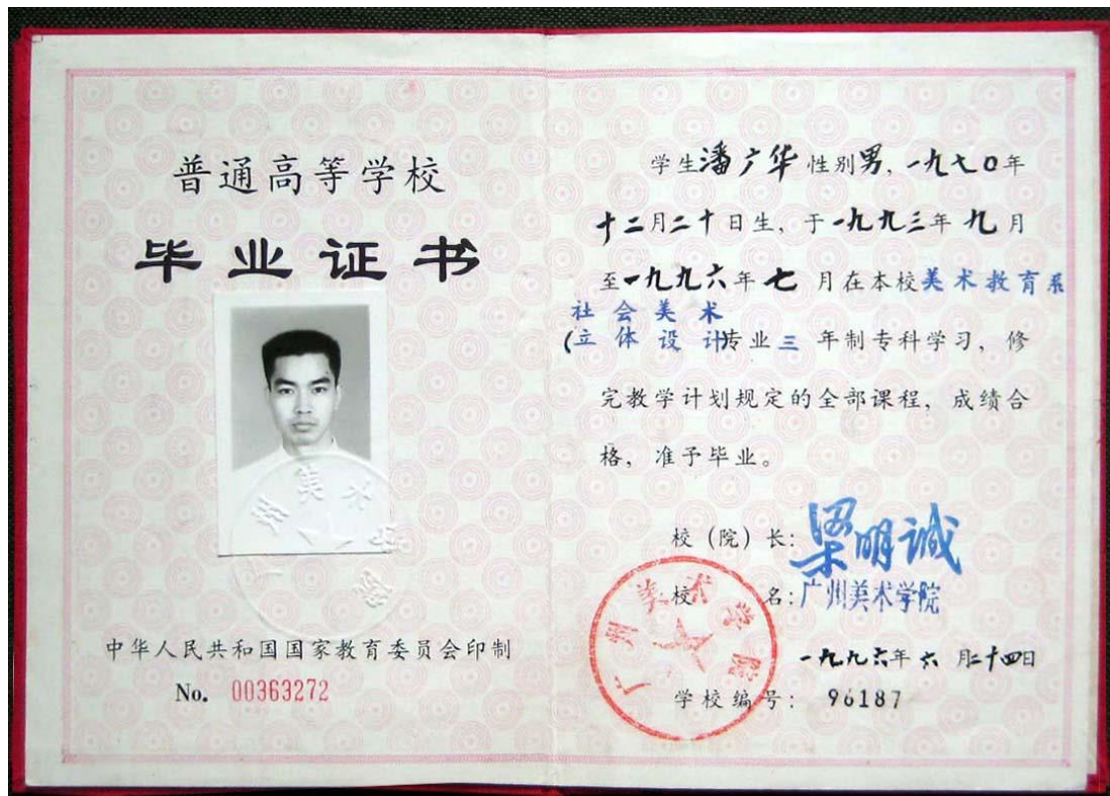 普通高等学校
毕业证书
广州美术学院
中华人民共和国国家教育委员会印制
No. 00363272
学生潘广华性别男,一九七0年
十二月二十日生,于一九九三年九月
至一九九六年七月在本校美术教育系
社会美术
(立体设计专业三年制专科学习,修
完教学计划规定的全部课程,成绩合
格,准予毕业。
校(院)长:梁明诚
校名:广州美术学院
广州美术学院
一九九六年六月二十四日
学校编号:96187